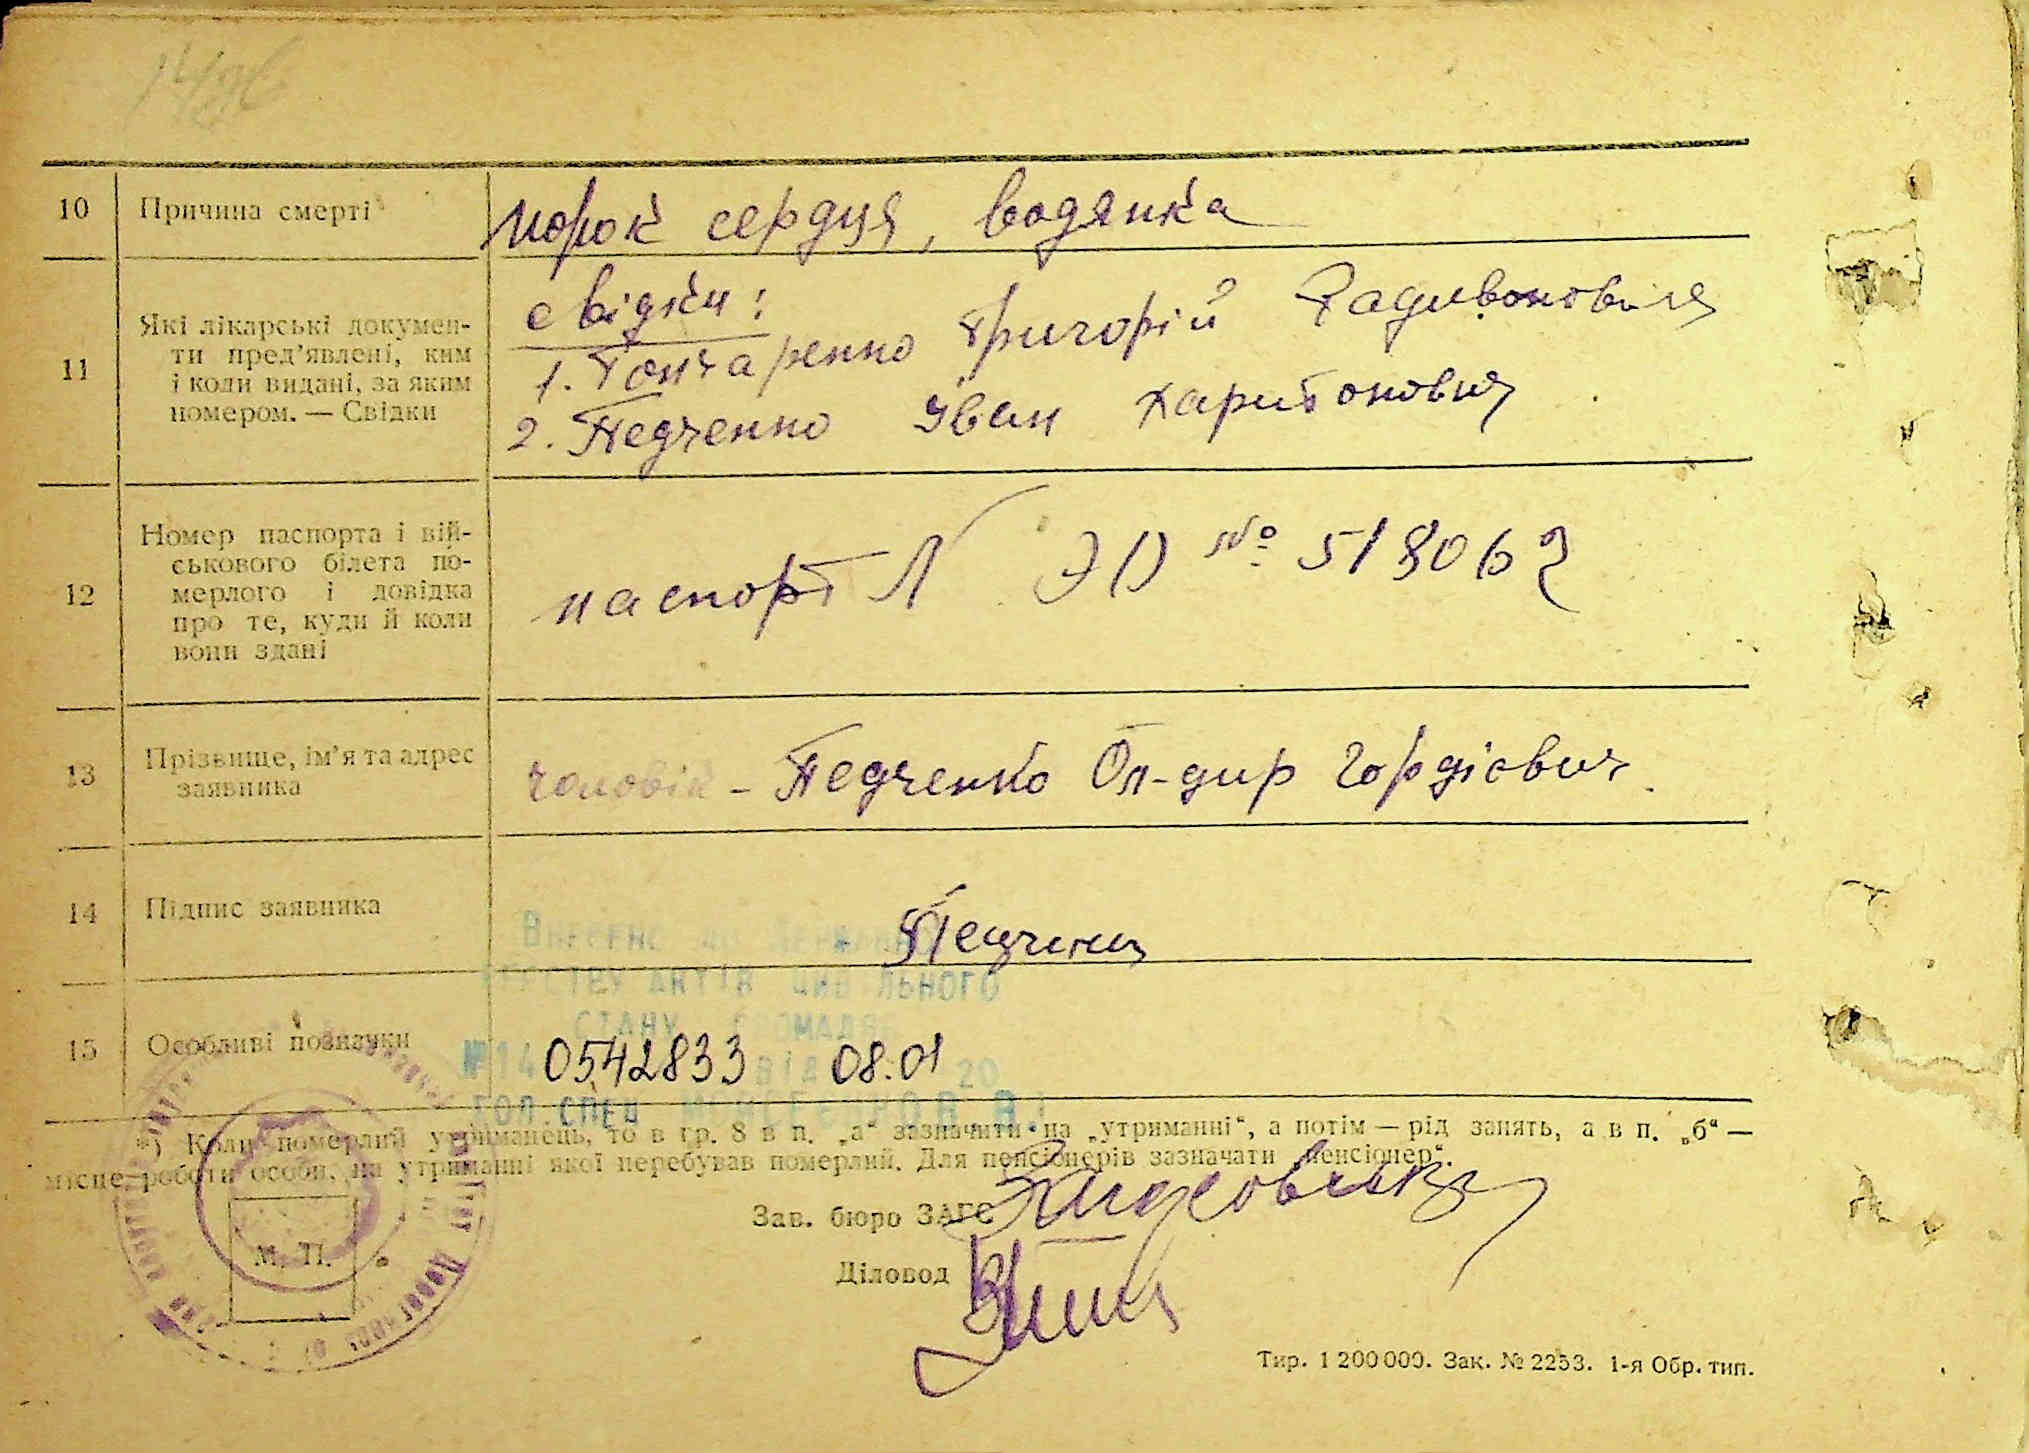 10 Причина смерті порок сердця, водянка
11 Які лікарські докумен-
ти пред'явлені, ким
і коли видані, за яким
номером. — Свідки
свідки:
1. Гончаренко Григорій Радивонович
2. Педченко Іван Харитонович
12 Номер паспорта і вій-
ськового білета по-
мерлого і довідка
про те, куди й коли
вони здані
паспорт № 518062
13 Прізвище, ім'я та адрес
заявника
чоловік - Педченко Ол-дир Гордієвич
14 Підпис заявника
Внесено до Державного
реєстру актів цивільного
стану громадян
15 Особливі позначки
№ 14 0542833 від 08.01 20
гол.спец
*) Коли померлий утриманець, то в гр. 8 в п. „а“ зазначити: на „утриманні“, а потім — рід занять, а в п. „б“ —
місце роботи особи, на утриманні якої перебував померлий. Для пенсіонерів зазначати „пенсіонер“.
Зав. бюро ЗАГС
Діловод
М. П.
Тир. 1 200 000. Зак. № 2253. 1-я Обр. тип.